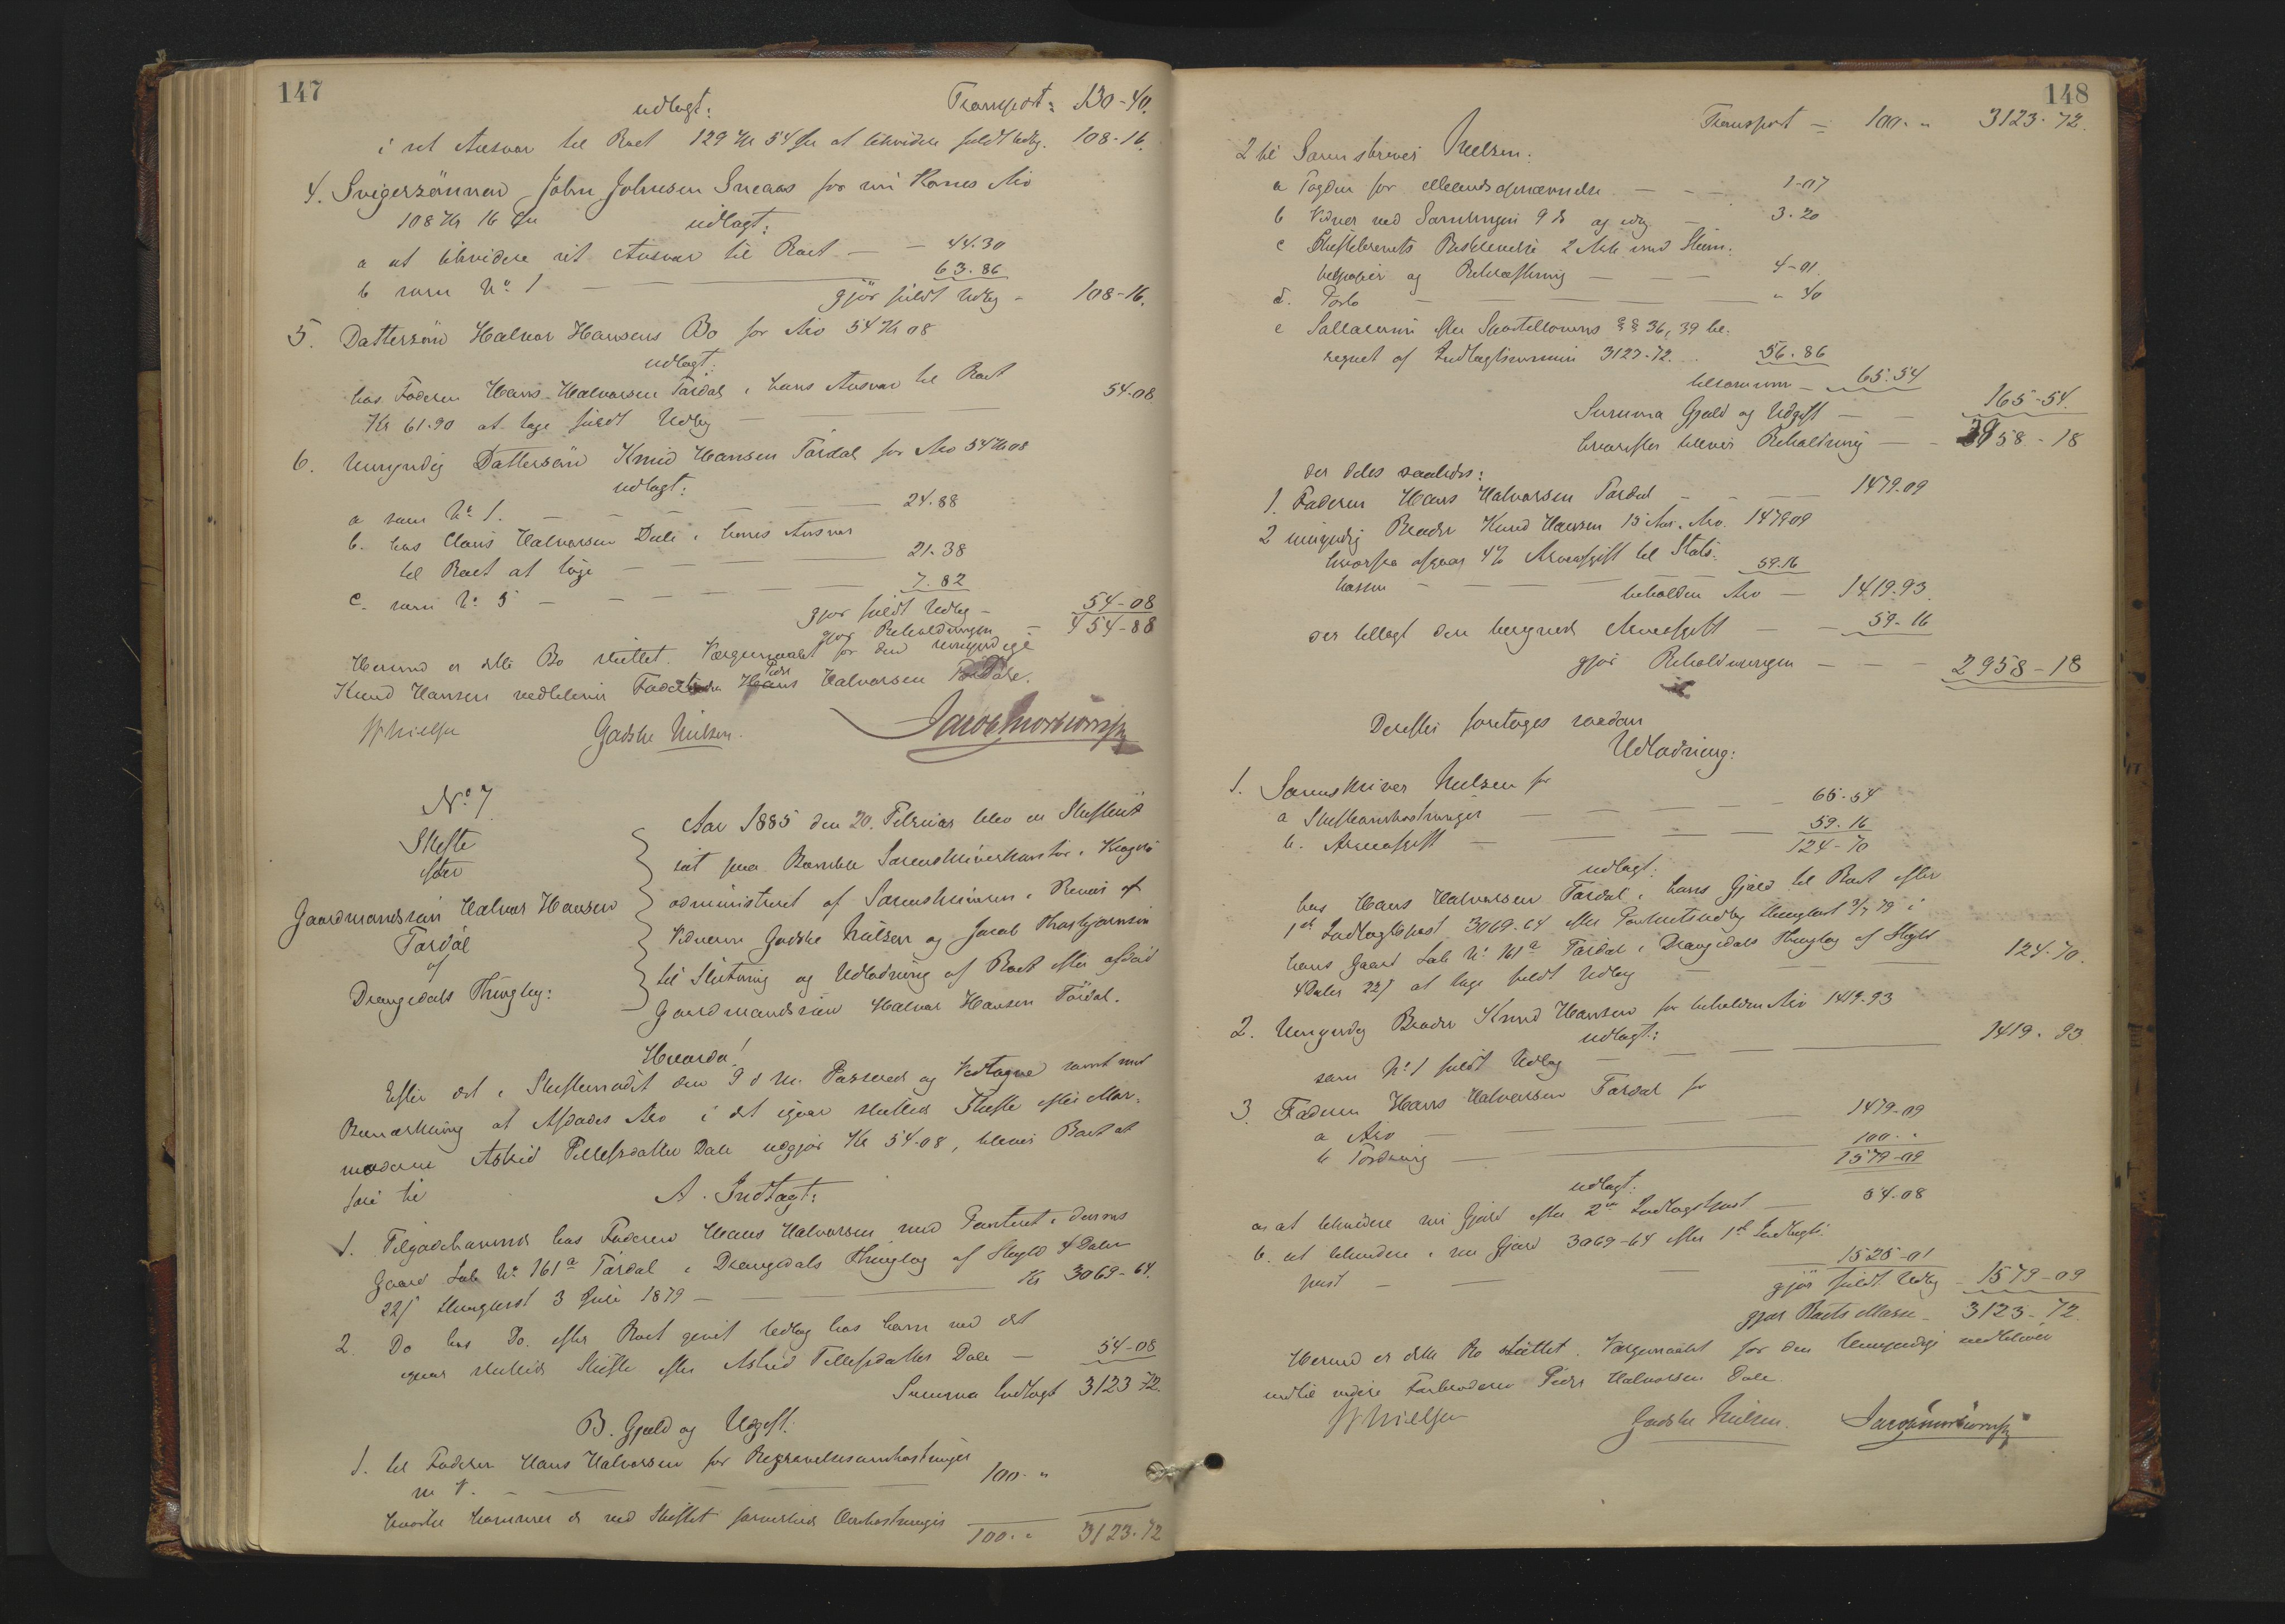 147
udlagt: Transport = 130-40.
i sit Ansvar til Boet 129 Kr 54 Øre at likvidere fuldt Udlæg. 108-16.
4. Svigersönnen John Johnsen Sneaas for sin Kones Arv
108 Kr 16 Øre udlagt:
a at likvidere sit Ansvar til Boet — — 44.30
b som No 1 — — — 63.86
gjör fuldt Udlæg - 108-16.
5. Dattersön Halvor Hansens Bo for Arv 54 Kr 08
udlagt:
hos Faderen Hans Halvorsen Tördal i hans Ansvar til Boet
Kr 61.90 at tage fuldt Udlæg — 54-08.
6. Umyndig Dattersön Knud Hansen Tördal for Arv 54 Kr 08
udlagt:
a som No 1. — — — 24.88
b. hos Claus Halvorsen Dale i hans Ansvar
til Boet at tage — — — 21.38
c. som No 5 — — — 7.82
gjör fuldt Udlæg - 54-08
gjör Beholdningen - 454-88
Hermed er dette Bo sluttet. Værgemaalet for den umyndige
Knud Hansen vedbliver Peder Halvorsen
Gadske Nielsen. Jacob Thorbjørnsen
No 7
Skifte
efter
Gaardmandssön Halvor Hansen
Tördal
af
Drangedals Thinglag:
Aar 1885 den 20. Februar blev en Skifteret
sat paa Bamble Sorenskriverkontor i Kragerö
administreret af Sorenskriveren i Overvær af
Vidnerne Gadske Nielsen og Jacob Thorbjørnsen
til Slutning og Udlodning af Boet efter afdöd
Gaardmandssön Halvor Hansen Tördal.
Hvorda!
Efter det i Skiftemödet den 9 d M. Passered og Vedtagne samt med
Bemærkning at Afdödes Arv i det igaar sluttede Skifte efter Mor-
moderen Astrid Tellefsdatter Dale udgjör Kr 54-08, bliver Boet at
före til A. Indtægt:
1. Tilgodehavende hos Faderen Hans Halvorsen med Panteret i dennes
Gaard Löb No 161a Tördal i Drangedals Thinglag af Skyld 4 Daler
22 s thinglæst 3 Juli 1879 — Kr 3069-64.
2. Do hos Do. efter Boet givet Udlæg hos ham ved det
igaar sluttede Skifte efter Astrid Tellefsdatter Dale — 54-08
Summa Indtægt 3123-72.
B. Gjæld og Udgift:
1. til Faderen Hans Halvorsen for Begravelsesomkostninger
m V. — — — 100. "
hvortil kommer de ved Skiftet foranledigede Omkostninger
100. " 3123.72
148
Transport — 100. " 3123-72.
2 til Sorenskriver Nielsen:
a — — — 1-07
b Vidner ved Samlingen 9 ds og idag — 3.20
c Skiftebrevets Beskrivelse 2 Ark med Stem-
pelpapir og Bekræftning — — 4-01
d. Porto — — — " 40
e Sallarium efter Sportellovens §§ 36, 39 be-
regnet af Indtægtssummen 3123-72. 56.86
tilsammen — 65.54
Summa Gjæld og Udgift — — 165-54.
hvorefter bliver Beholdning — — 2958-18
der deles saaledes:
1. Faderen Hans Halvorsen Tördal — — 1479.09
2 umyndig Broder Knud Hansen 15 Aar. Arv. 1479 09
hvorfra afgaar 4% Arveafgift til Stats-
kassen — — — 59.16
beholden Arv — 1419.93.
der tillagt den beregnede Arveafgift — — 59.16
gjör Beholdningen — — — 2958-18
Derefter foretages saadan
Udlodning:
1. Sorenskriver Nielsen for
a Skifteomkostninger — — — 65-54
b. Arveafgift — — — 59.16
124-70
udlagt:
hos Hans Halvorsen Tördal i hans Gjæld til Boet efter
1st Indtægtspost 3069-64 efter Panteretsudlæg thinglæst 3/7 79 i
hans Gaard Löb No 161a Tördal i Drangedals Thinglag af Skyld
4 Daler 22 s at tage fuldt Udlæg — — 124-70.
2. Umyndig Broder Knud Hansen for beholden Arv 1419-93
udlagt:
som No 1 fuldt Udlæg — — 1419.93
3. Faderen Hans Halvorsen Tördal for
a Arv — — — 1479-09
b Fordring — — — 100. "
1579-09
udlagt:
a at likvidere sin Gjæld efter 2den Indtægtspost — 54-08
b. at likvidere i sin Gjæld 3069-64 efter 1st Indtægts-
post — — — 1525-01
gjör fuldt Udlæg - 1579-09
gjör Boets Masse - 3123-72.
Hermed er dette Bo sluttet. Værgemaalet for den Umyndige vedbliver
indtil videre Farbroderen Peder Halvorsen Dale.
Gadske Nielsen. Jacob Thorbjørnsen